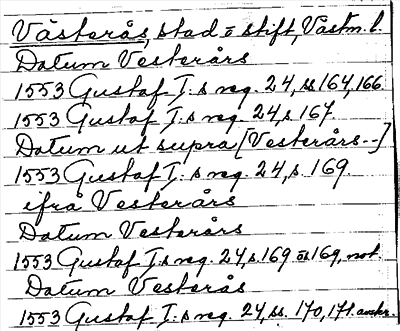 Västerås, stad o stift, Västm. l.
Datum Vesterårs
1553 Gustaf I:s reg. 24, ss 164, 166.
1553 Gustaf I:s reg. 24, s 167.
Datum ut supra [Vesterårs--]
1553 Gustaf I:s reg. 24, s. 169.
ifrå Vesterårs
Datum Vesterårs
1553 Gustaf I:s reg. 24, s. 169 169, not.
Datum Vesterås
1553 Gustaf I:s reg. 24, ss. 170, 171.